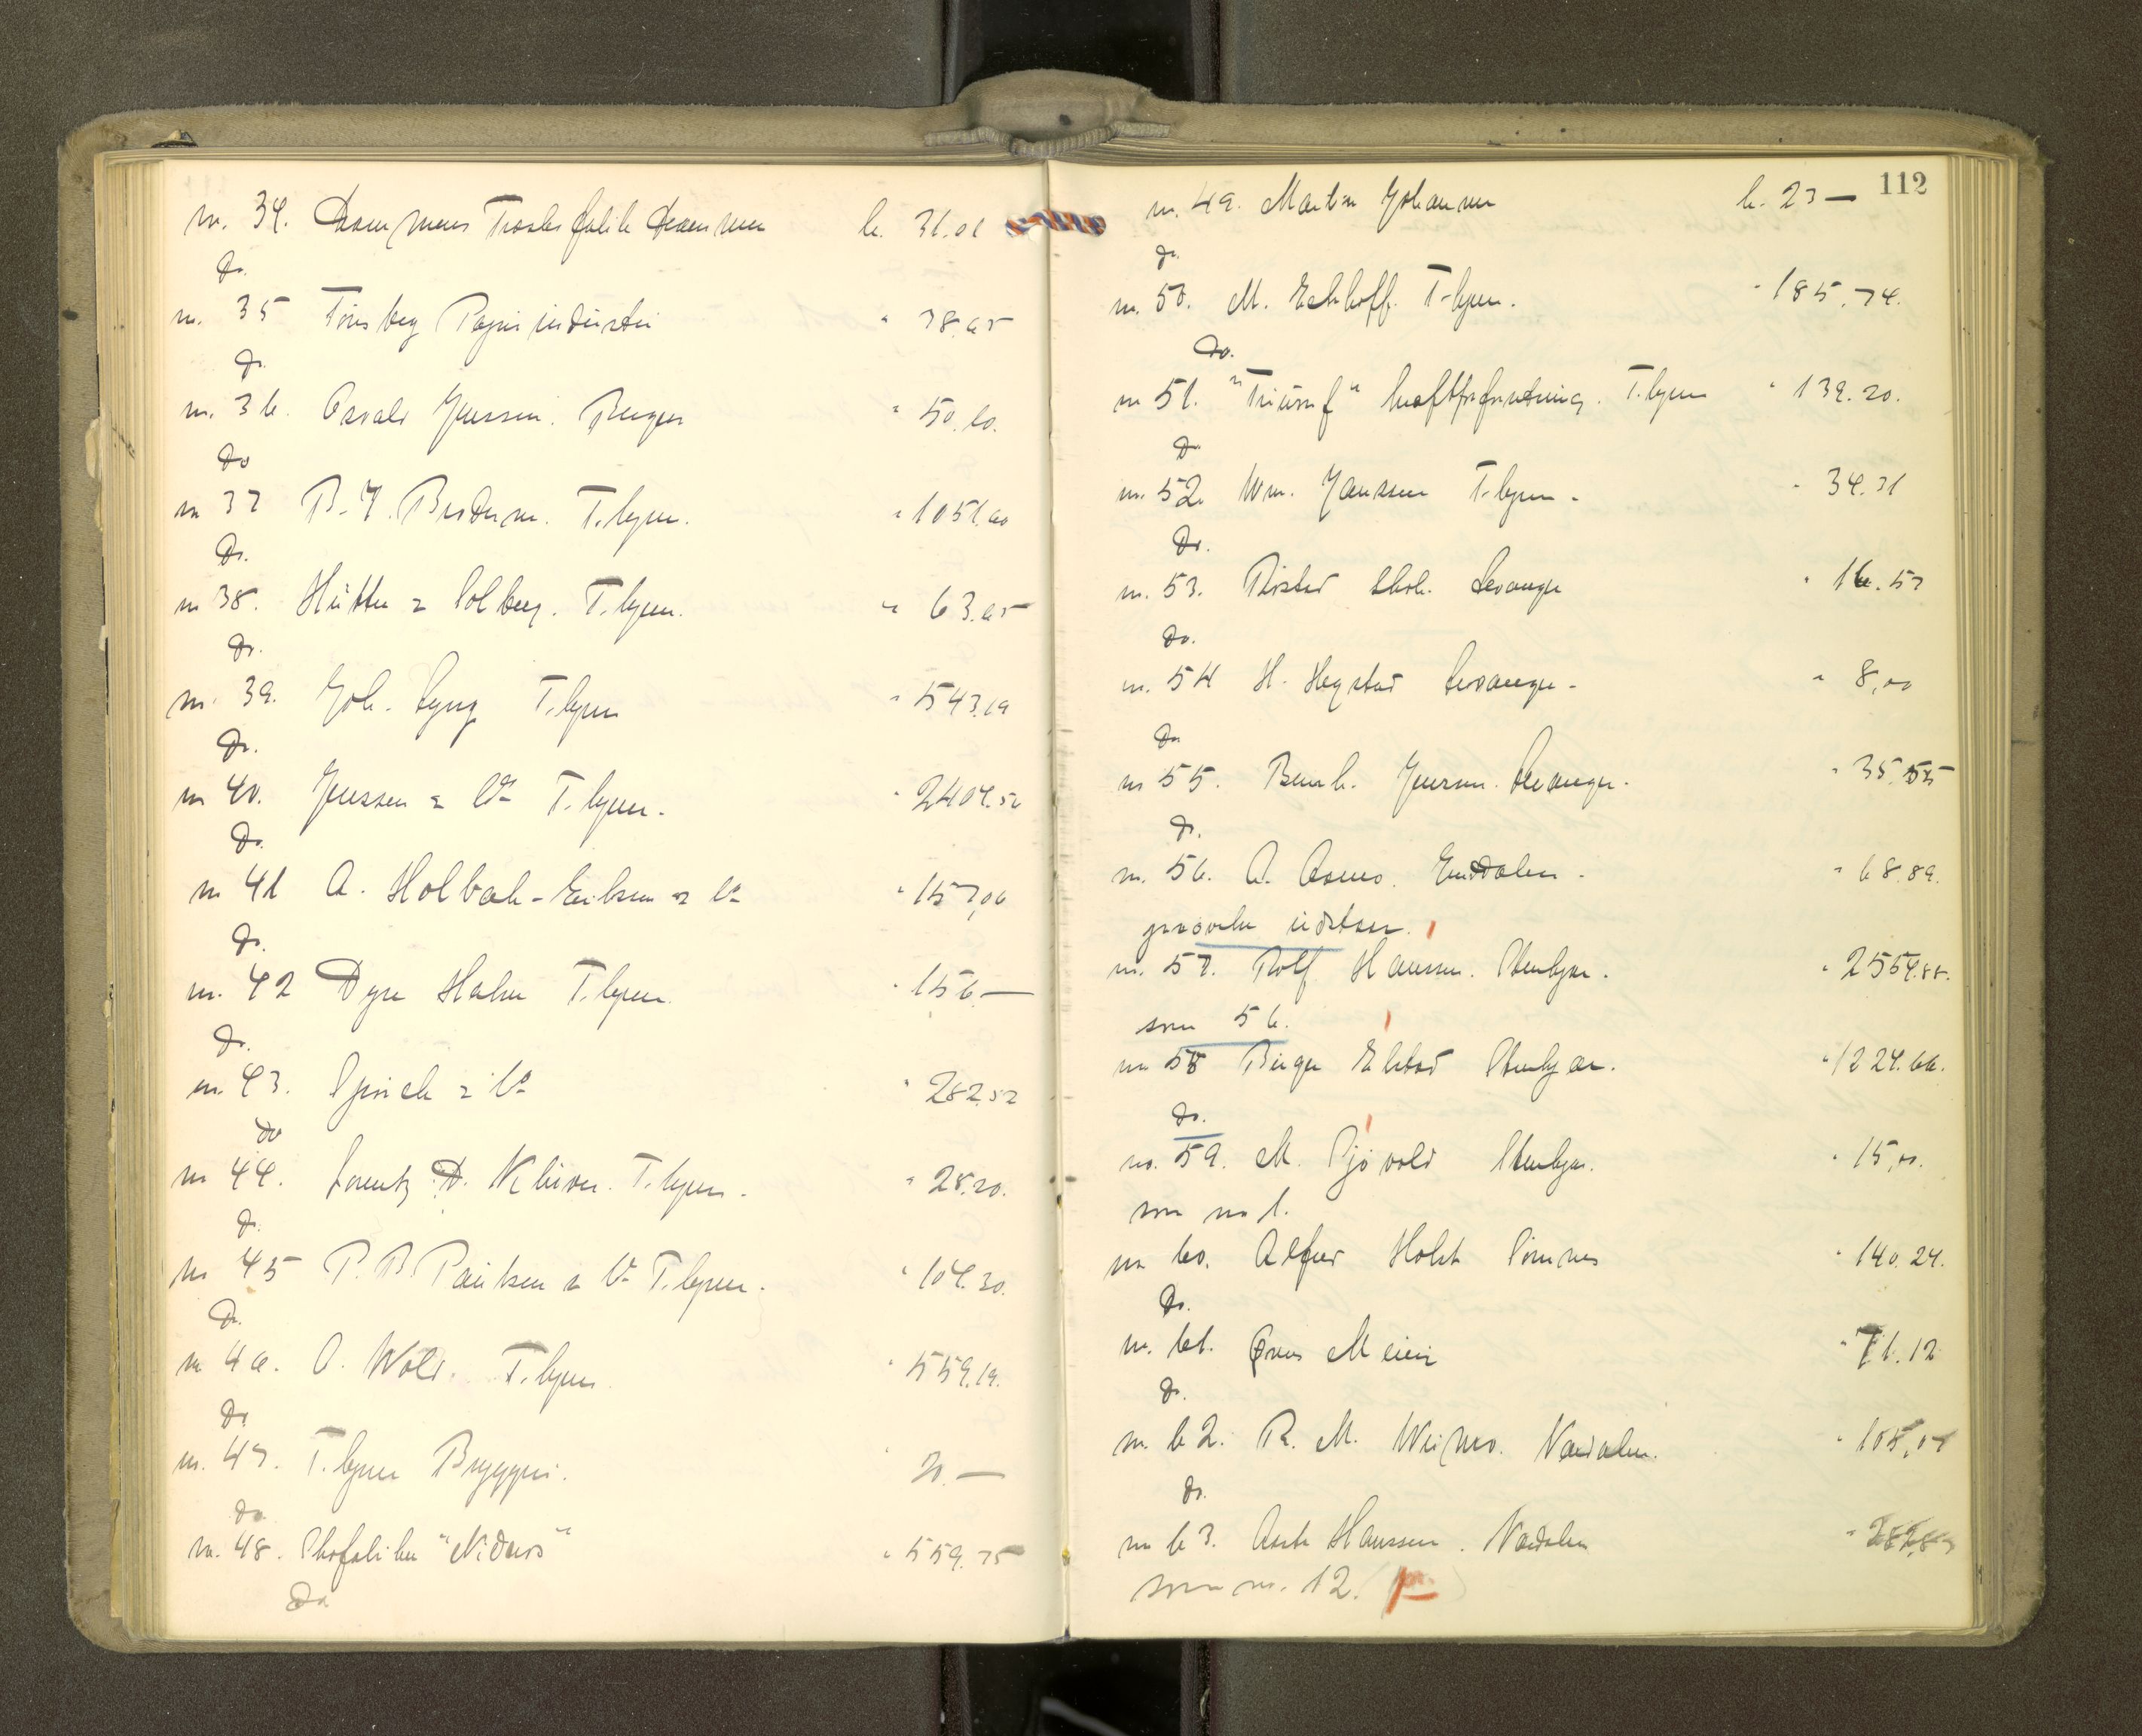 nr. 34. Drammens Trævarefabrik Drammen kr. 31.01
Do.
nr. 35 Tönsberg Papirindustri " 38.65
Do.
nr. 36. Osvald Jenssen. Bergen " 50.60.
Do
nr 37 B. J. Brodern. T.hjem. " 1051.60
Do.
nr 38. Hütter & Solberg. T.hjem. " 63.65
Do.
nr. 39. Joh. Lyng T.hjem " 543.19
Do.
nr 40. Jenssen & Co T.hjem. " 2404.52
Do.
nr 41 A. Holbæk-Eriksen & Co " 157,06
Do.
nr. 42 Dyre Halse T.hjem. " 156.—
Do.
nr. 43. Sprich & Co " 282.52
do
nr 44. Lorentz D. Klüver. T.hjem. " 28.20.
Do.
nr 45 P. B. Paulsen & Co T.hjem. " 104.30.
Do.
nr 46. O. Wold. T.hjem " 559.19.
Do
nr. 47. T.hjem Bryggeri. 20.—
do
nr. 48. Skofabriken "Nidaros" " 559.75
Do
112
nr. 49. Martin Johansen kr. 23—
do.
nr. 50. M. Eckhoff. T-hjem. " 185.74.
Do.
nr 51. "Triumf" T.hjem " 139.20.
Do
nr. 52. Wm. Janssen T.hjem. " 34.31
Do.
nr. 53. Ristad Levanger " 16.53
Do.
nr. 54 H. Hegstad Levanger. " 8,00
Do
nr 55. Bernh. Jenssen. Levanger. " 35.55
Do.
nr. 56. O. Aasmo. Inndalen. " 68.89.
prøvelse udstaar.
nr. 57. Rolf Hanssen. Stenkjær. " 2554.88.
som 56.
nr 58 Birger Ekstad Stenkjær. " 1224.66.
Do.
nr. 59. M. Sjövold Stenkjær. " 15,00.
som no 1.
nr 60. Alfred Holst Sömnes " 140.24.
Do.
nr. 61. Ørens Meieri " 71.12
Do.
nr. 62. R. M. Weimo. Værdalen. " 108,07
Do.
nr 63. Anton Hanssen. Værdalen " 282,83
som nr. 12.